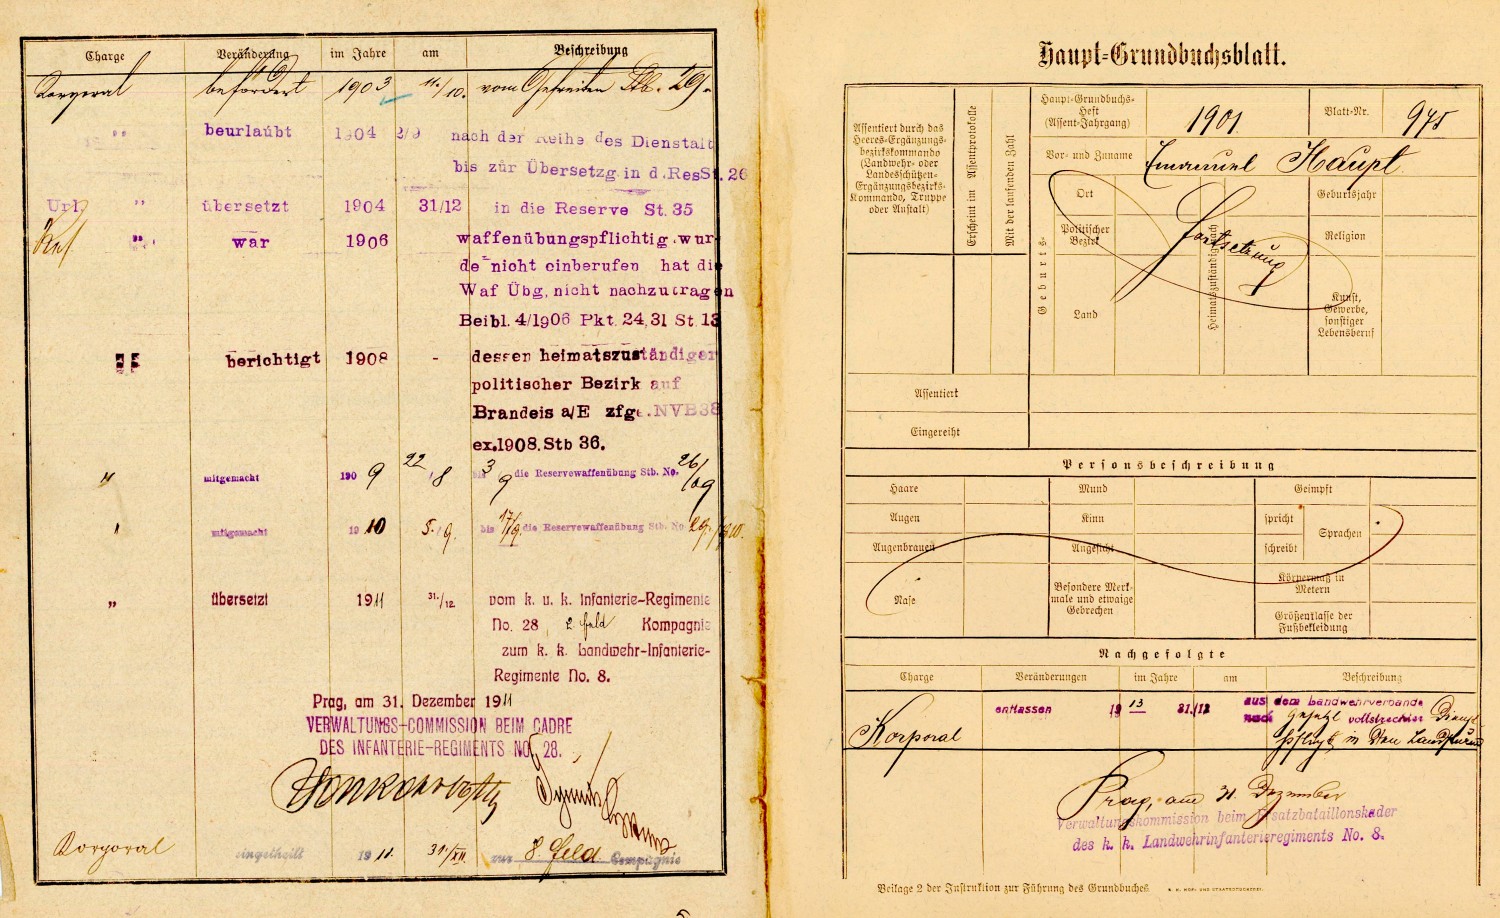 Charge Veränderung im Jahre am Beschreibung
Korporal befördert 1903 11./10. vom Gefreiten Stb. 29.
" beurlaubt 1904 2/9 nach der Reihe des Dienstalt
bis zur Übersetzg in d. Res St. 26
Url. " übersetzt 1904 31/12 in die Reserve St. 35
" war 1906 waffenübungspflichtig. wur-
de nicht einberufen hat die
Waf Übg, nicht nachzutragen
Beibl. 4/1906 Pkt. 24,31 St 13
" berichtigt 1908 - dessen heimatszuständiger
politischer Bezirk auf
Brandeis a/E zfge. NVB 38
ex.1908. Stb 36.
" mitgemacht 1909 22/8 bis 3/9 die Reservewaffenübung Stb. No. 26/09
" mitgemacht 1910 5./9. bis 17/9. die Reservewaffenübung Stb. No. 29./1910.
" übersetzt 1911 31./12. vom k. u. k. Infanterie-Regimente
No. 28 2. Feld Kompagnie
zum k. k. Landwehr-Infanterie-
Regimente No. 8.
Prag, am 31. Dezember 1911
VERWALTUNGS-COMMISSION BEIM CADRE
DES INFANTERIE-REGIMENTS No. 28.
Korporal eingeteilt 1911. 31./XII. zur 8. Feld Compagnie
Haupt-Grundbuchsblatt.
Assentiert durch das
Heeres-Ergänzungs-
bezirkskommando
(Landwehr- oder
Landesschützen-
Ergänzungsbezirks-
Kommando, Truppe
oder Anstalt)
Erscheint im Assentprotokolle
Mit der laufenden Zahl
Haupt-Grundbuchs-
Heft
(Assent-Jahrgang)
1901 Blatt-Nr. 975
Vor- und Zuname Emanuel Haupt
Geburts-
Ort
Politischer
Bezirk
Land
Heimatszuständig nach
Fortsetzung
Geburtsjahr
Religion
Kunst,
Gewerbe,
sonstiger
Lebensberuf
Assentiert
Eingereiht
Personsbeschreibung
Haare Mund Geimpft
Augen Kinn spricht Sprachen
Augenbrauen Angesicht schreibt
Nase
Besondere Merk-
male und etwaige
Gebrechen
Körpermaß in
Metern
Größenklasse der
Fußbekleidung
Nachgefolgte
Charge Veränderungen im Jahre am Beschreibung
Korporal entlassen 1913 31./12 aus dem Landwehrverbande
nach gesetzl vollstreckter Dienst-
pflicht in den Landsturm
Prag, am 31. Dezember
Verwaltungskommission beim Ersatzbataillonskader
des k. k. Landwehrinfanterieregiments No. 8.
Beilage 2 der Instruktion zur Führung des Grundbuches K. K. HOF- UND STAATSDRUCKEREI.